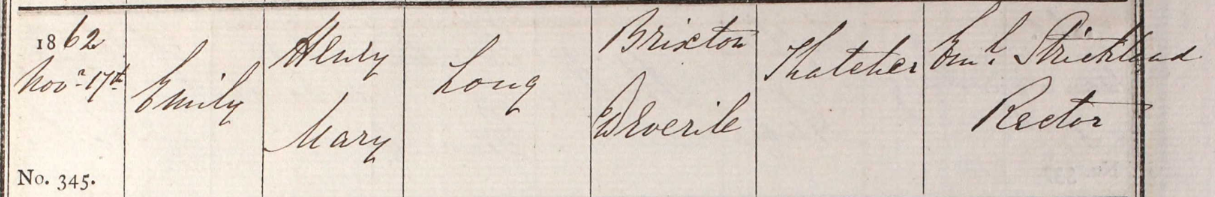 1862
Nov. 17th
Emily
Henry
Mary
Long
Brixton
Deverile
Thatcher
Strickland
Rector
No. 345.